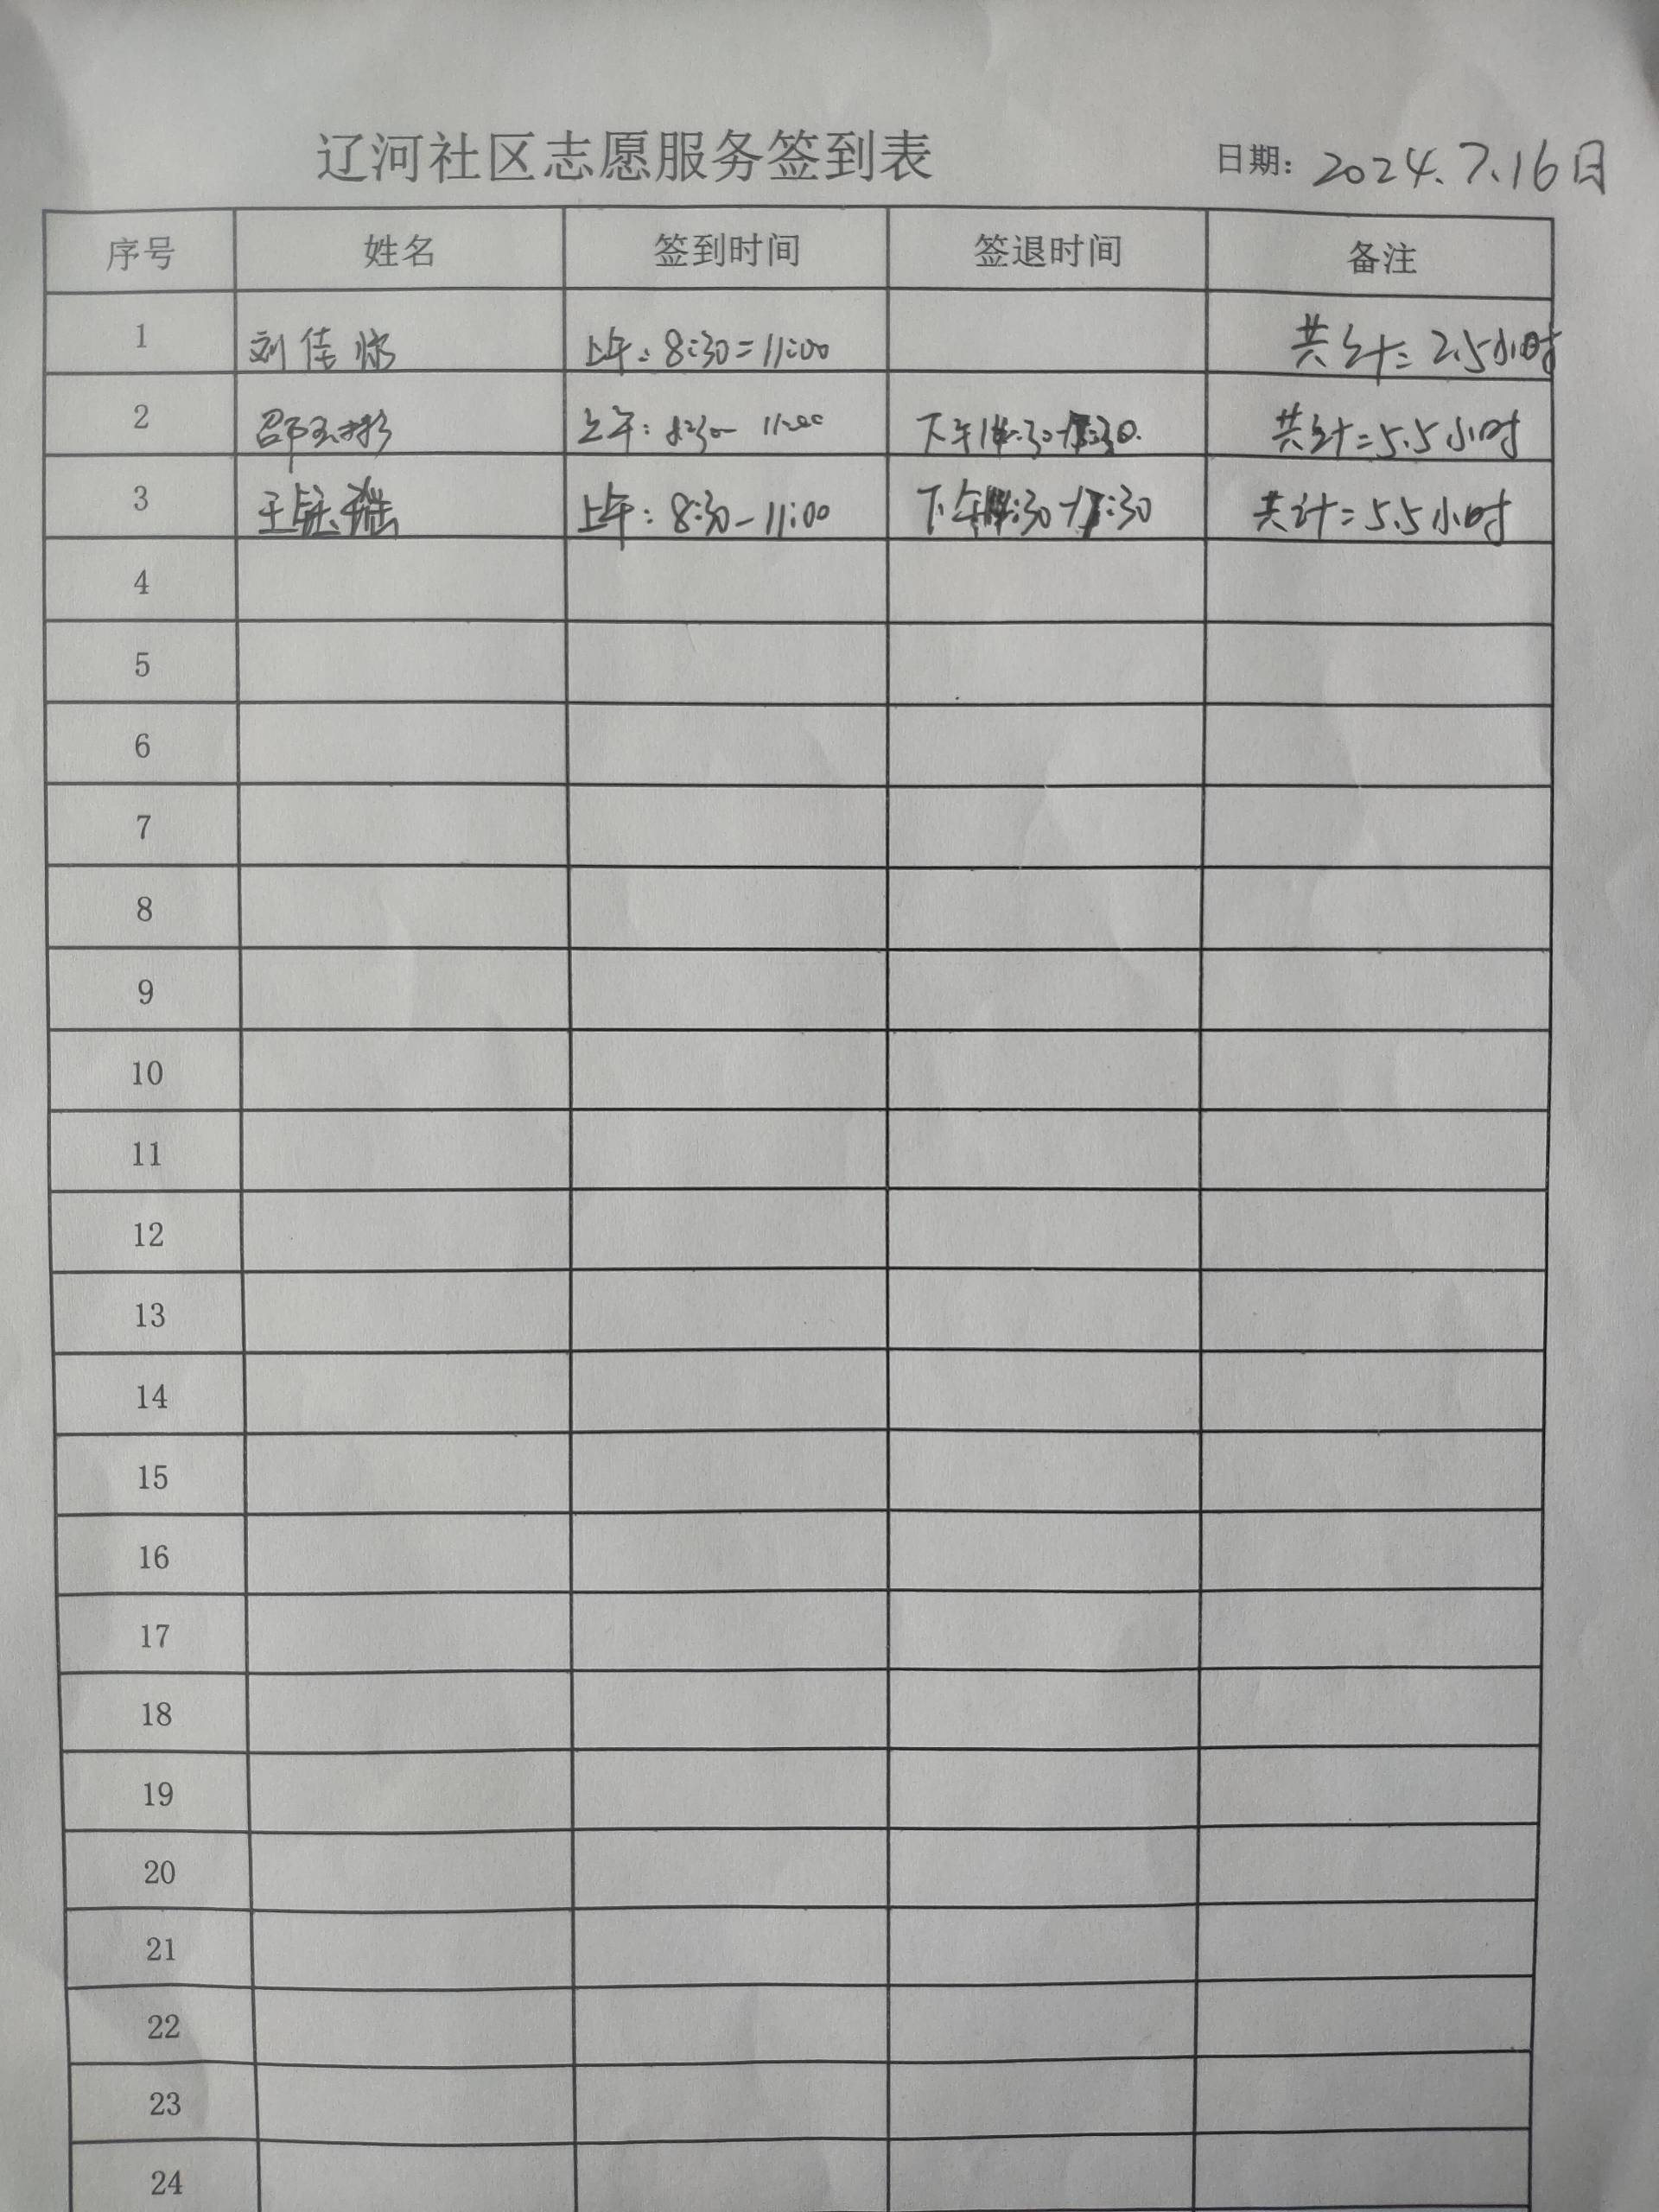 辽河社区志愿服务签到表 日期: 2024.7.16日
序号 姓名 签到时间 签退时间 备注
1 刘佳 上午: 8:30=11:00 共计=2.5小时
2 邵玉 上午: 8:30-11:00 下午14:30-17:30. 共计=5.5小时
3 王 上午: 8:30-11:00 下午14:30-17:30 共计=5.5小时
4
5
6
7
8
9
10
11
12
13
14
15
16
17
18
19
20
21
22
23
24